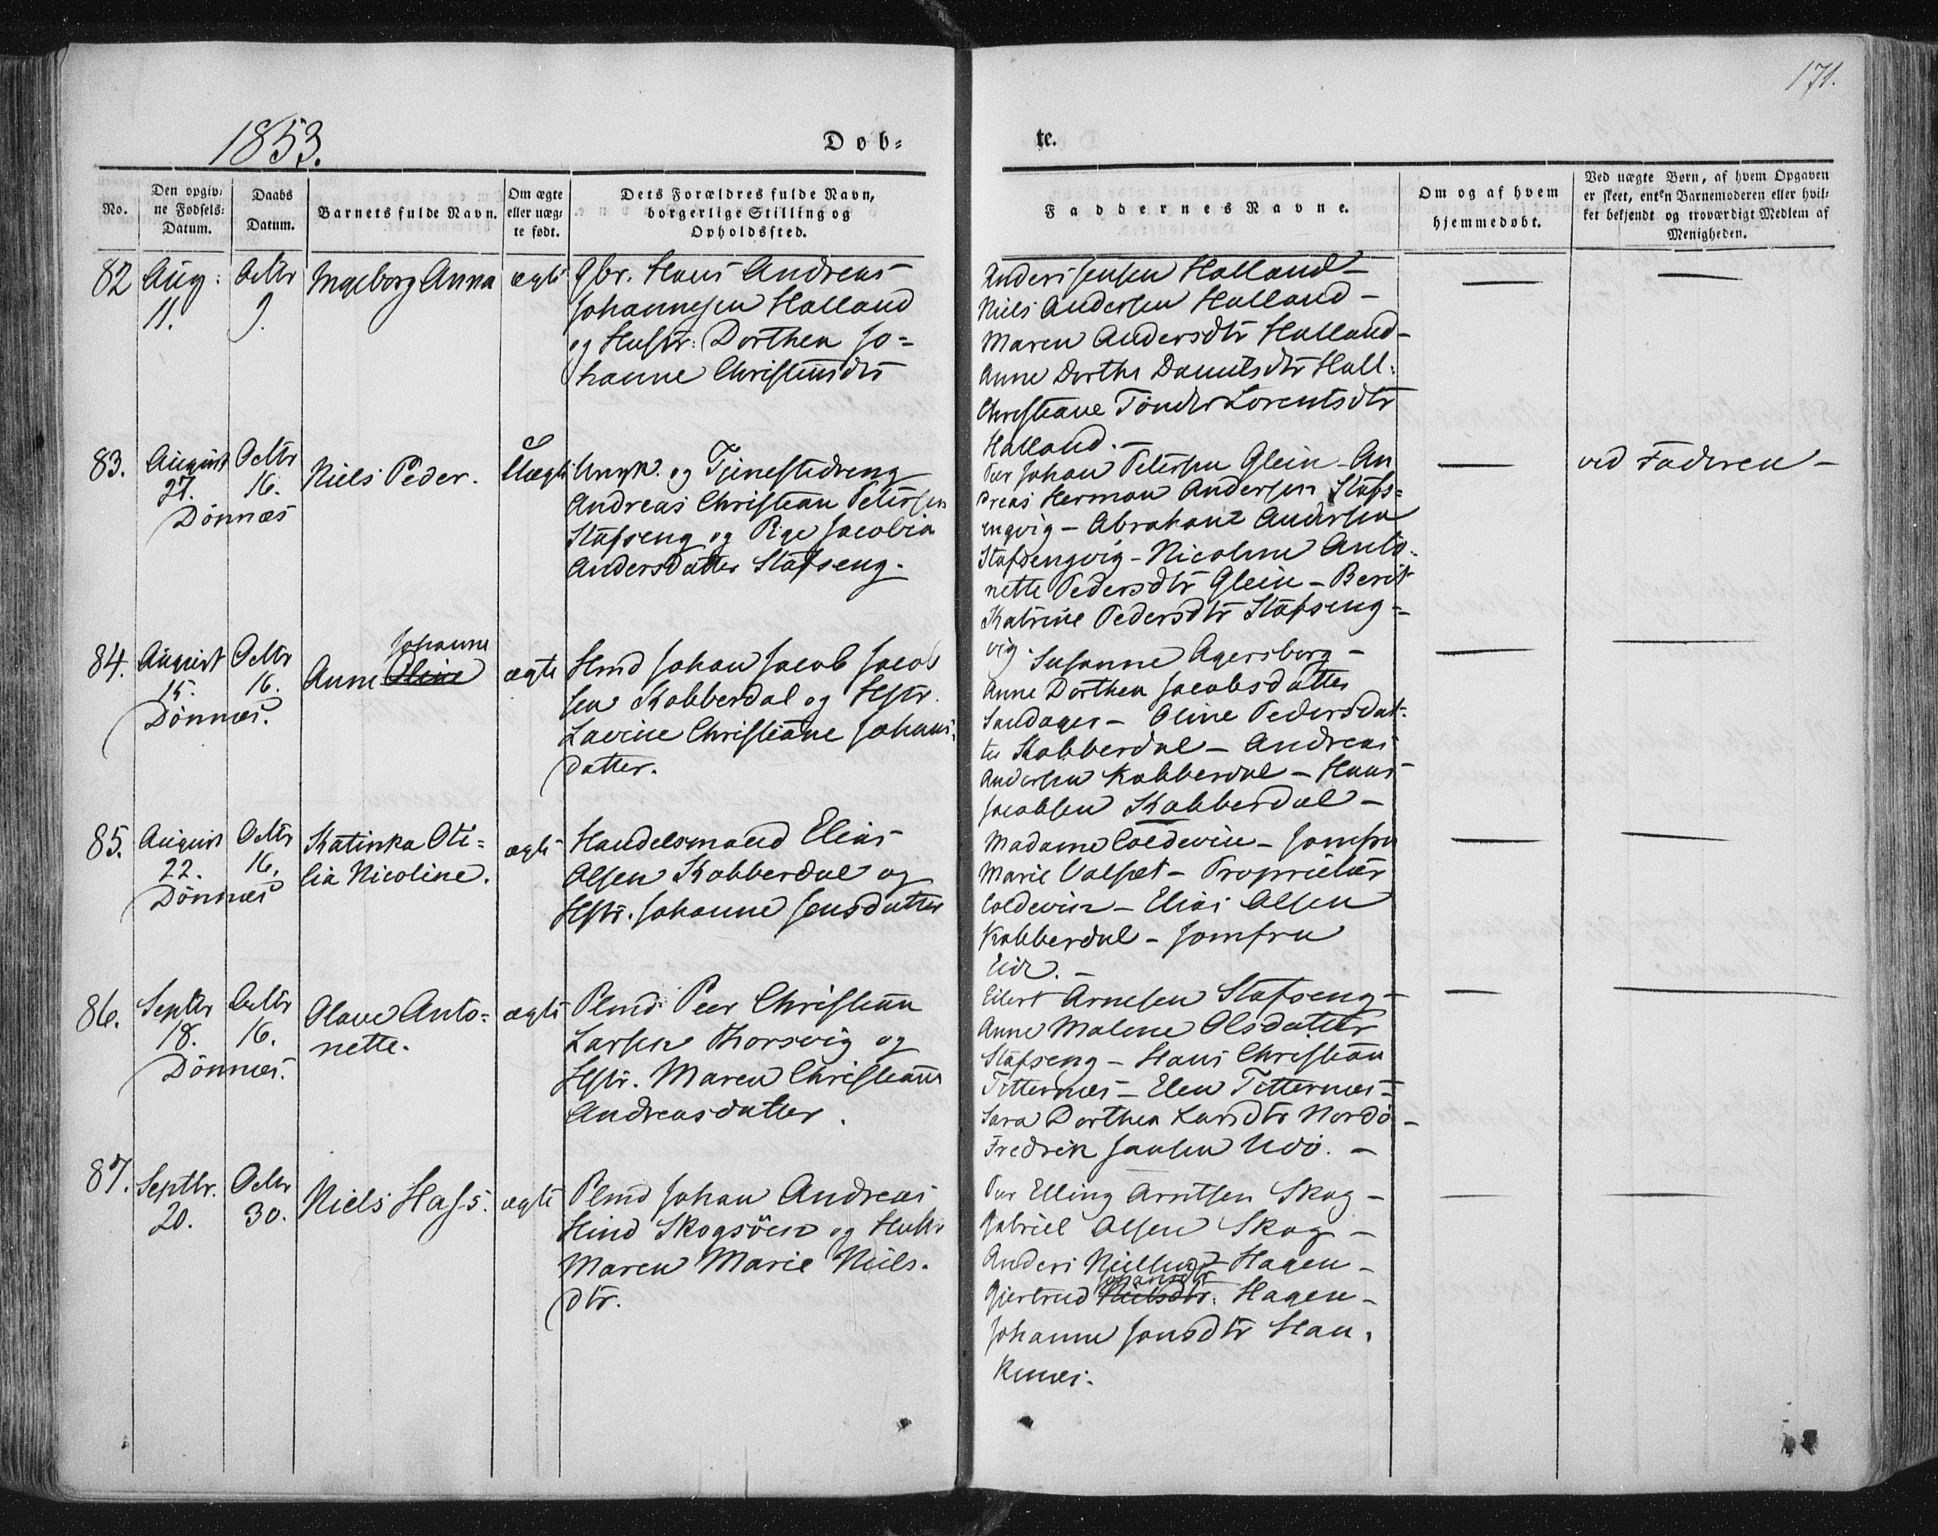 171.
1853.
Døb-
te.
No.
Den opgiv-
ne Fødsels-
Datum.
Daabs
Datum.
Barnets fulde Navn.
Om ægte
eller uæg-
te født.
Dets Forældres fulde Navn,
borgerlige Stilling og
Opholdssted.
Faddernes Navne.
Om og af hvem
hjemmedøbt.
Ved uægte Børn, af hvem Opgaven
er skeet, enten Barnemoderen eller hvil-
ket bekjendt og troværdigt Medlem af
Menigheden.
82
Aug:
11.
Octbr
9.
Ingeborg Anna
ægte
Gbr. Hans Andreas
Johannesen Halland
og Hustr: Dorthea Jo-
hanne Christensdtr
Anders Jensen Halland -
Niels Andersen Halland -
Maren Andersdtr Halland -
Anne Dorthe Danielsdtr Hall.
Christiane Tønder Lorentsdtr
Halland. -
83.
August
27.
Dönnæs
Octbr
16.
Niels Peder.
Uægte
Ungk. og Tjenestedreng
Andreas Christian Petersen
Stafseng og Pige Jacobia
Andersdatter Stafseng.
Per Johan Petersen Glein - An
dreas Herman Andersen Stafs-
engvig - Abraham Andersen
Stafsengvig - Nicoline Anto-
nette Pedersdtr Glein - Berit
Katrine Pedersdtr Stafseng-
vig.
ved Faderen -
84.
August
15.
Dönnæs.
Octbr
16.
Johanne
Anne Oline
ægte
Hmd Johan Jacob Jacob
sen Kobberdal og Hstr.
Lavine Christiane Johans-
datter.
Susanne Agersborg -
Anne Dorthea Jacobsdatter
Sandager - Oline Pedersdat-
ter Kobberdal - Andreas
Andersen Kobberdal - Hans
Jacobsen Kobberdal -
85.
August
22.
Dönnæs
Octbr
16.
Katinka Oti-
lia Nicoline.
ægte
Handelsmand Elias
Olsen Kobberdal og
Hstr. Johanne Jensdatter
Madame Coldevin - Jomfru
Marie Valset - Proprietær
Coldevin - Elias Olsen
Kobberdal - Jomfru
86.
Septbr
18.
Dönnæs.
Octbr
16.
Olave Anto-
nette.
ægte
Plmd. Peer Christian
Larsen Thorsvig og
Hstr. Maren Christiane
Andreasdatter.
Eilert Arnesen Stafseng -
Anne Malene Olsdatter
Stafseng - Hans Christian
Titternes - Elen Titternes -
Sara Dorthea Larsdtr Nordö -
Fredrik Jansen -
87.
Septbr.
20.
Octbr
30.
Niels Hass.
ægte
Plmd Johan Andreas
Hind Skogsöen og Hustr
Maren Marie Niels-
dtr.
Per Elling Arntsen Skog -
Gabriel Olsen Skog -
Anders Hagen -
Johansdtr
Gjertrud Nielsdtr. Hagen -
Johanne Jonsdtr Han-
knæs.